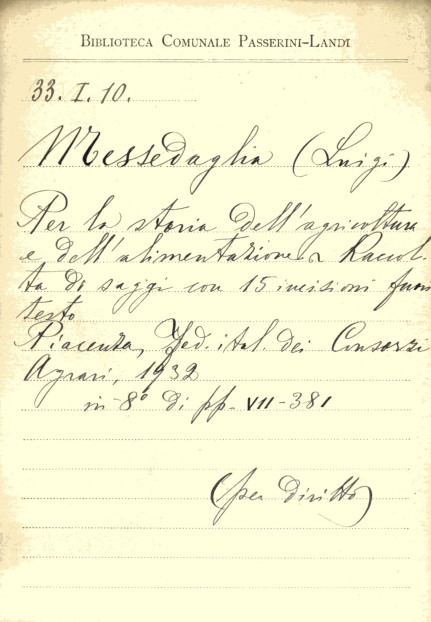 BIBLIOTECA COMUNALE PASSERINI-LANDI
33. I. 10.
Messedaglia (Luigi)
Per la storia dell'agricoltura
e dell'alimentazione Raccol-
ta di saggi con 15 incisioni fuori
testo
Piacenza, Fed. ital. dei Consorzi
Agrari, 1932
in 8° di pp. VII-381
(per diritto)